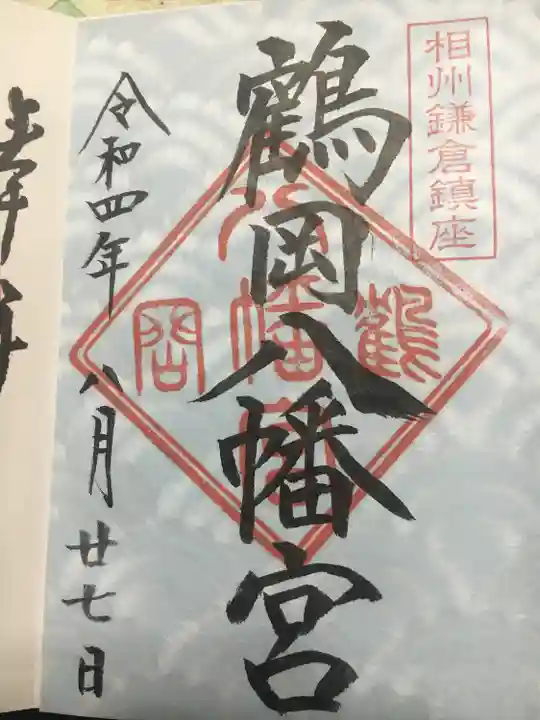 相州鎌倉鎮座
鶴岡八幡宮
鶴
八幡宮
岡
令和四年八月廿七日
奉拝